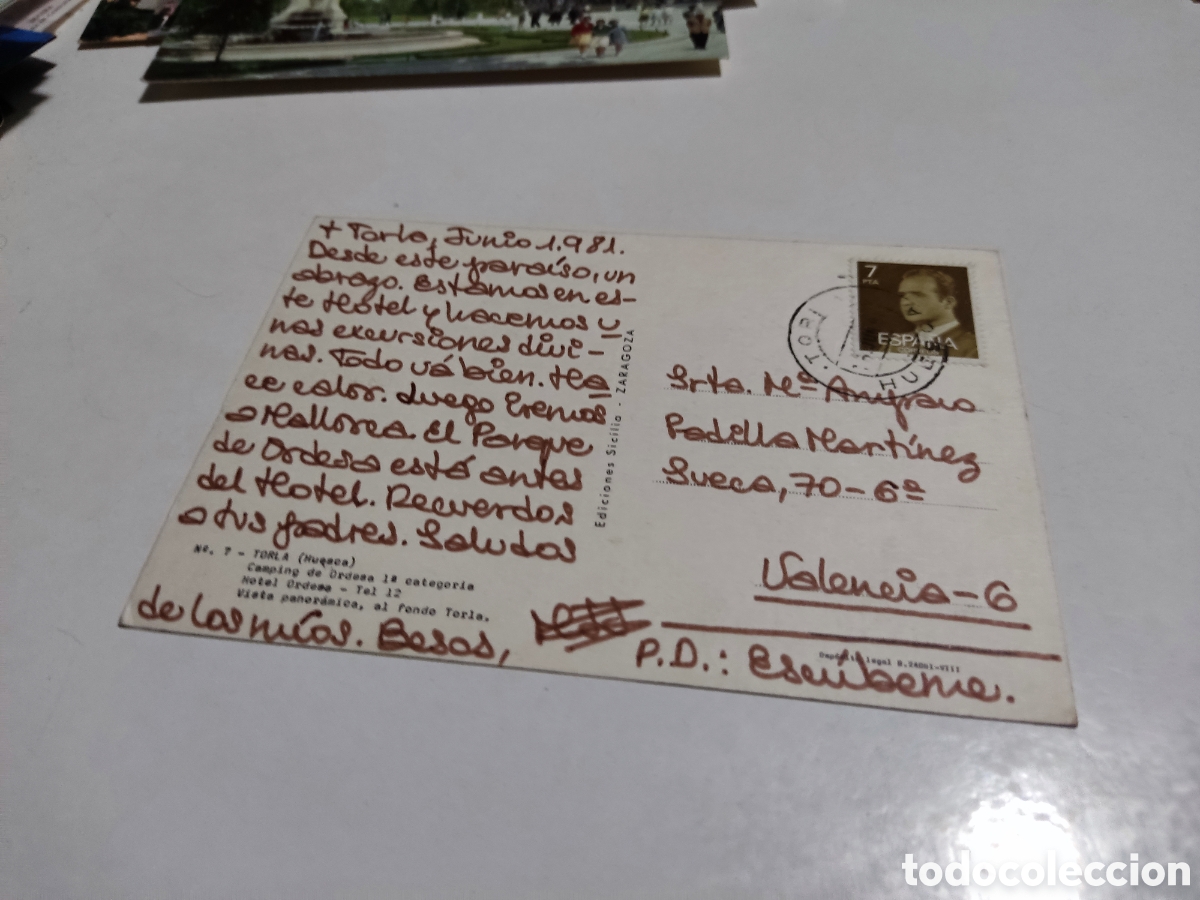 + Torla, Junio 1.981.
Desde este paraíso, un
abrazo. Estamos en es-
te Hotel y hacemos u
nas excursiones divi-
nas. Todo vá bien. Ha
ce calor. Luego iremos
a Mallorca. El Parque
de Ordesa está antes
del Hotel. Recuerdos
a tus padres. Saludos
de los míos. Besos,
P.D.: Escríbeme.
Nº. 7 - TORLA (Huesca)
Camping de Ordesa 1ª categoría
Hotel Ordesa - Tel 12
Vista panorámica, al fondo Torla.
Ediciones Sicilia - ZARAGOZA
7
PTA
ESPAÑA
HUESCA
Srta. Mª Amparo
Padilla Martínez
Sueca, 70-6ª
Valencia-6
Depósito legal
todocoleccion